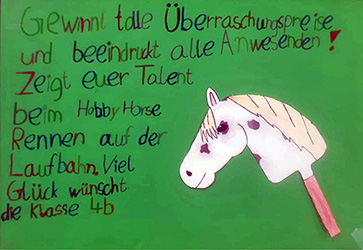 Gewinnt tolle Überraschungspreise
und beeindrukt alle Anwesenden!
Zeigt euer Talent
beim Hobby Horse
Rennen auf der
Laufbahn. Viel
Glück wünscht
die Klasse 4b